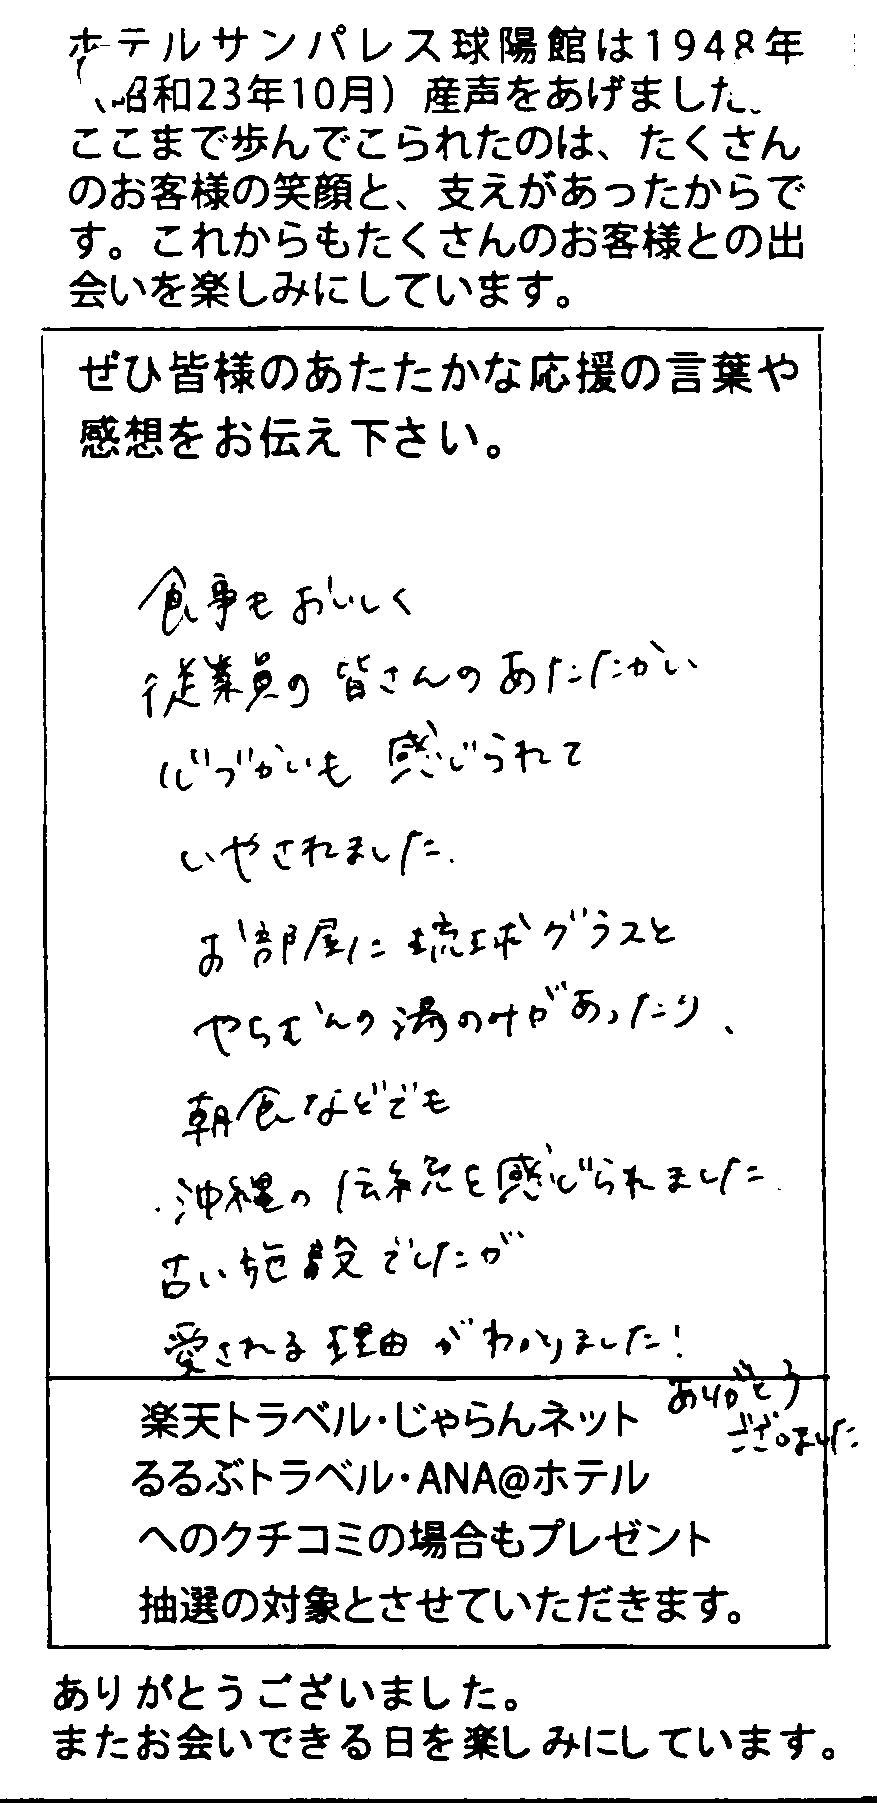 ホテルサンパレス球陽館は1948年
（昭和23年10月）産声をあげました。
ここまで歩んでこられたのは、たくさん
のお客様の笑顔と、支えがあったからで
す。これからもたくさんのお客様との出
会いを楽しみにしています。
ぜひ皆様のあたたかな応援の言葉や
感想をお伝え下さい。
食事もおいしく
従業員の皆さんのあたたかい
心づかいも感じられて
いやされました.
お部屋に琉球グラスと
やちむんの湯のみがあったり、
朝食などでも
沖縄の伝統を感じられました.
古い施設でしたが
愛される理由がわかりました!
ありがとう
ございました
楽天トラベル・じゃらんネット
るるぶトラベル・ANA@ホテル
へのクチコミの場合もプレゼント
抽選の対象とさせていただきます。
ありがとうございました。
またお会いできる日を楽しみにしています。